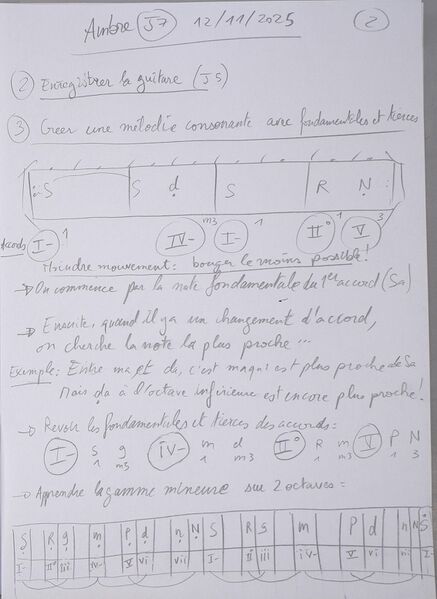 Ambre J7 12/11/2025 2
2 Enregistrer la guitare (J5)
3 Créer une mélodie consonante avec fondamentales et tierces
S S d S R N
Accords I- 1 IV- m3 I- 1 II° 1 V 3
Moindre mouvement : bouger le moins possible !
→ On commence par la note fondamentale du 1er accord (Sa)
→ Ensuite, quand il y a un changement d'accord,
on cherche la note la plus proche ...
Exemple : Entre ma et da, c'est ma qui est plus proche de Sa
Mais da à l'octave inférieure est encore plus proche !
→ Revoir les fondamentales et tierces des accords :
I- S g IV- m d II° R m V P N
1 m3 1 m3 1 m3 1 3
→ Apprendre la gamme mineure sur 2 octaves =
S R g m P d n N S R g m P d n N S
I- II° iii iv- V vi vii I- II iii iv- V vi vii I-